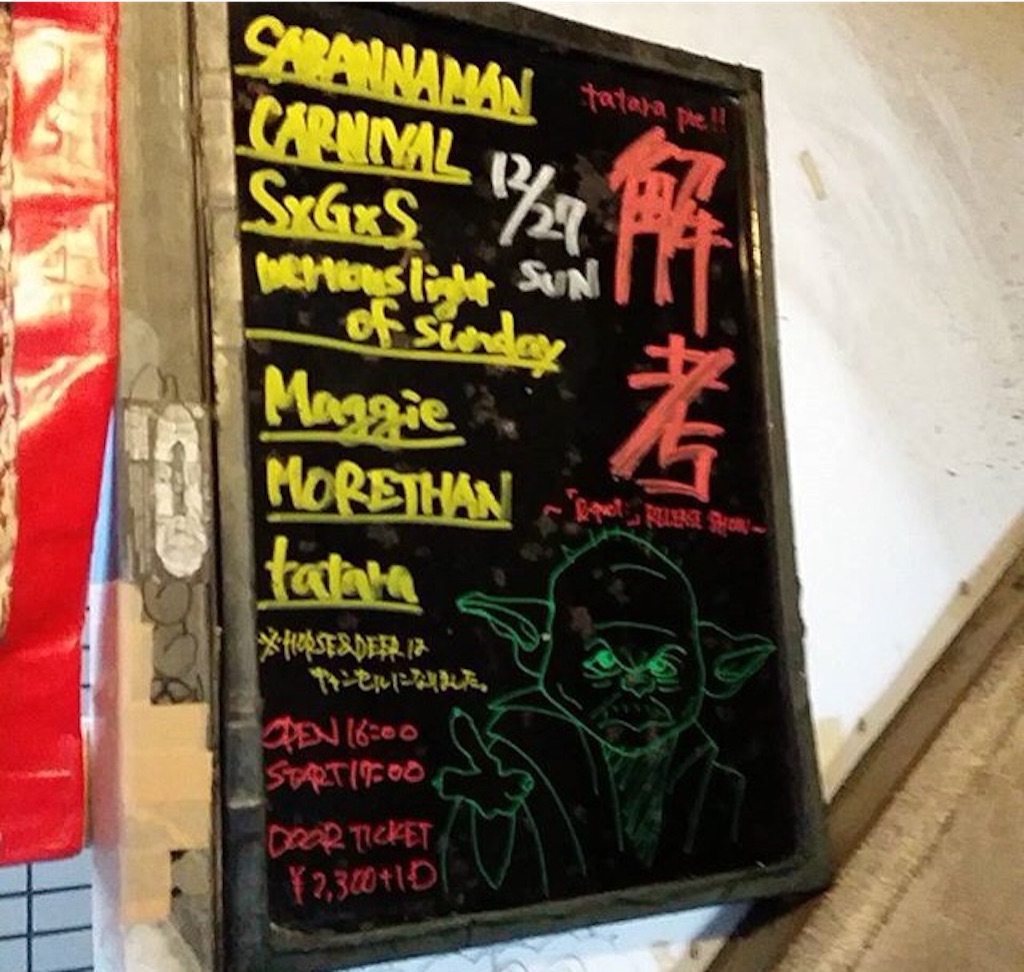 SABANNAMAN
CARNIVAL
SxGxS
nervous light
of sunday
Maggie
MORETHAN
tatara
※HORSE&DEERは
キャンセルになりました。
OPEN 16:00
START 17:00
DOOR TICKET
¥2,300+1D
12/27
SUN
tatara pre!!
解考
RELEASE SHOW~